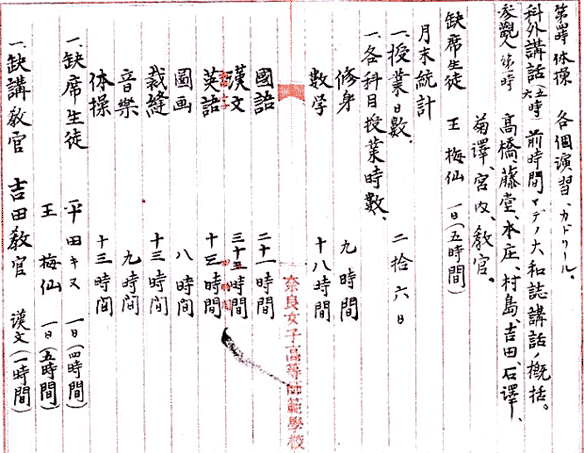 第四時 体操 各個演習、カドリール。
科外講話 五六時 前時間マデノ大和誌講話ノ概括。
参観人 第一時 高橋、藤堂、本庄、村島、吉田、石澤、
菊澤、宮内、教官。
缺席生徒 王梅仙 一日(五時間)
月末統計
一、授業日数、 二拾六日
一、各科目授業時數、
修身 九時間
数学 十八時間
奈良女子高等師範學校
國語 二十一時間
漢文 時間
習字 四時間
英語 時間
圖画 八時間
裁縫 十三時間
音樂 九時間
体操 十三時間
一、缺席生徒 平田キヌ 一日(四時間)
王梅仙 一日(五時間)
一、缺講教官 吉田教官 漢文(一時間)